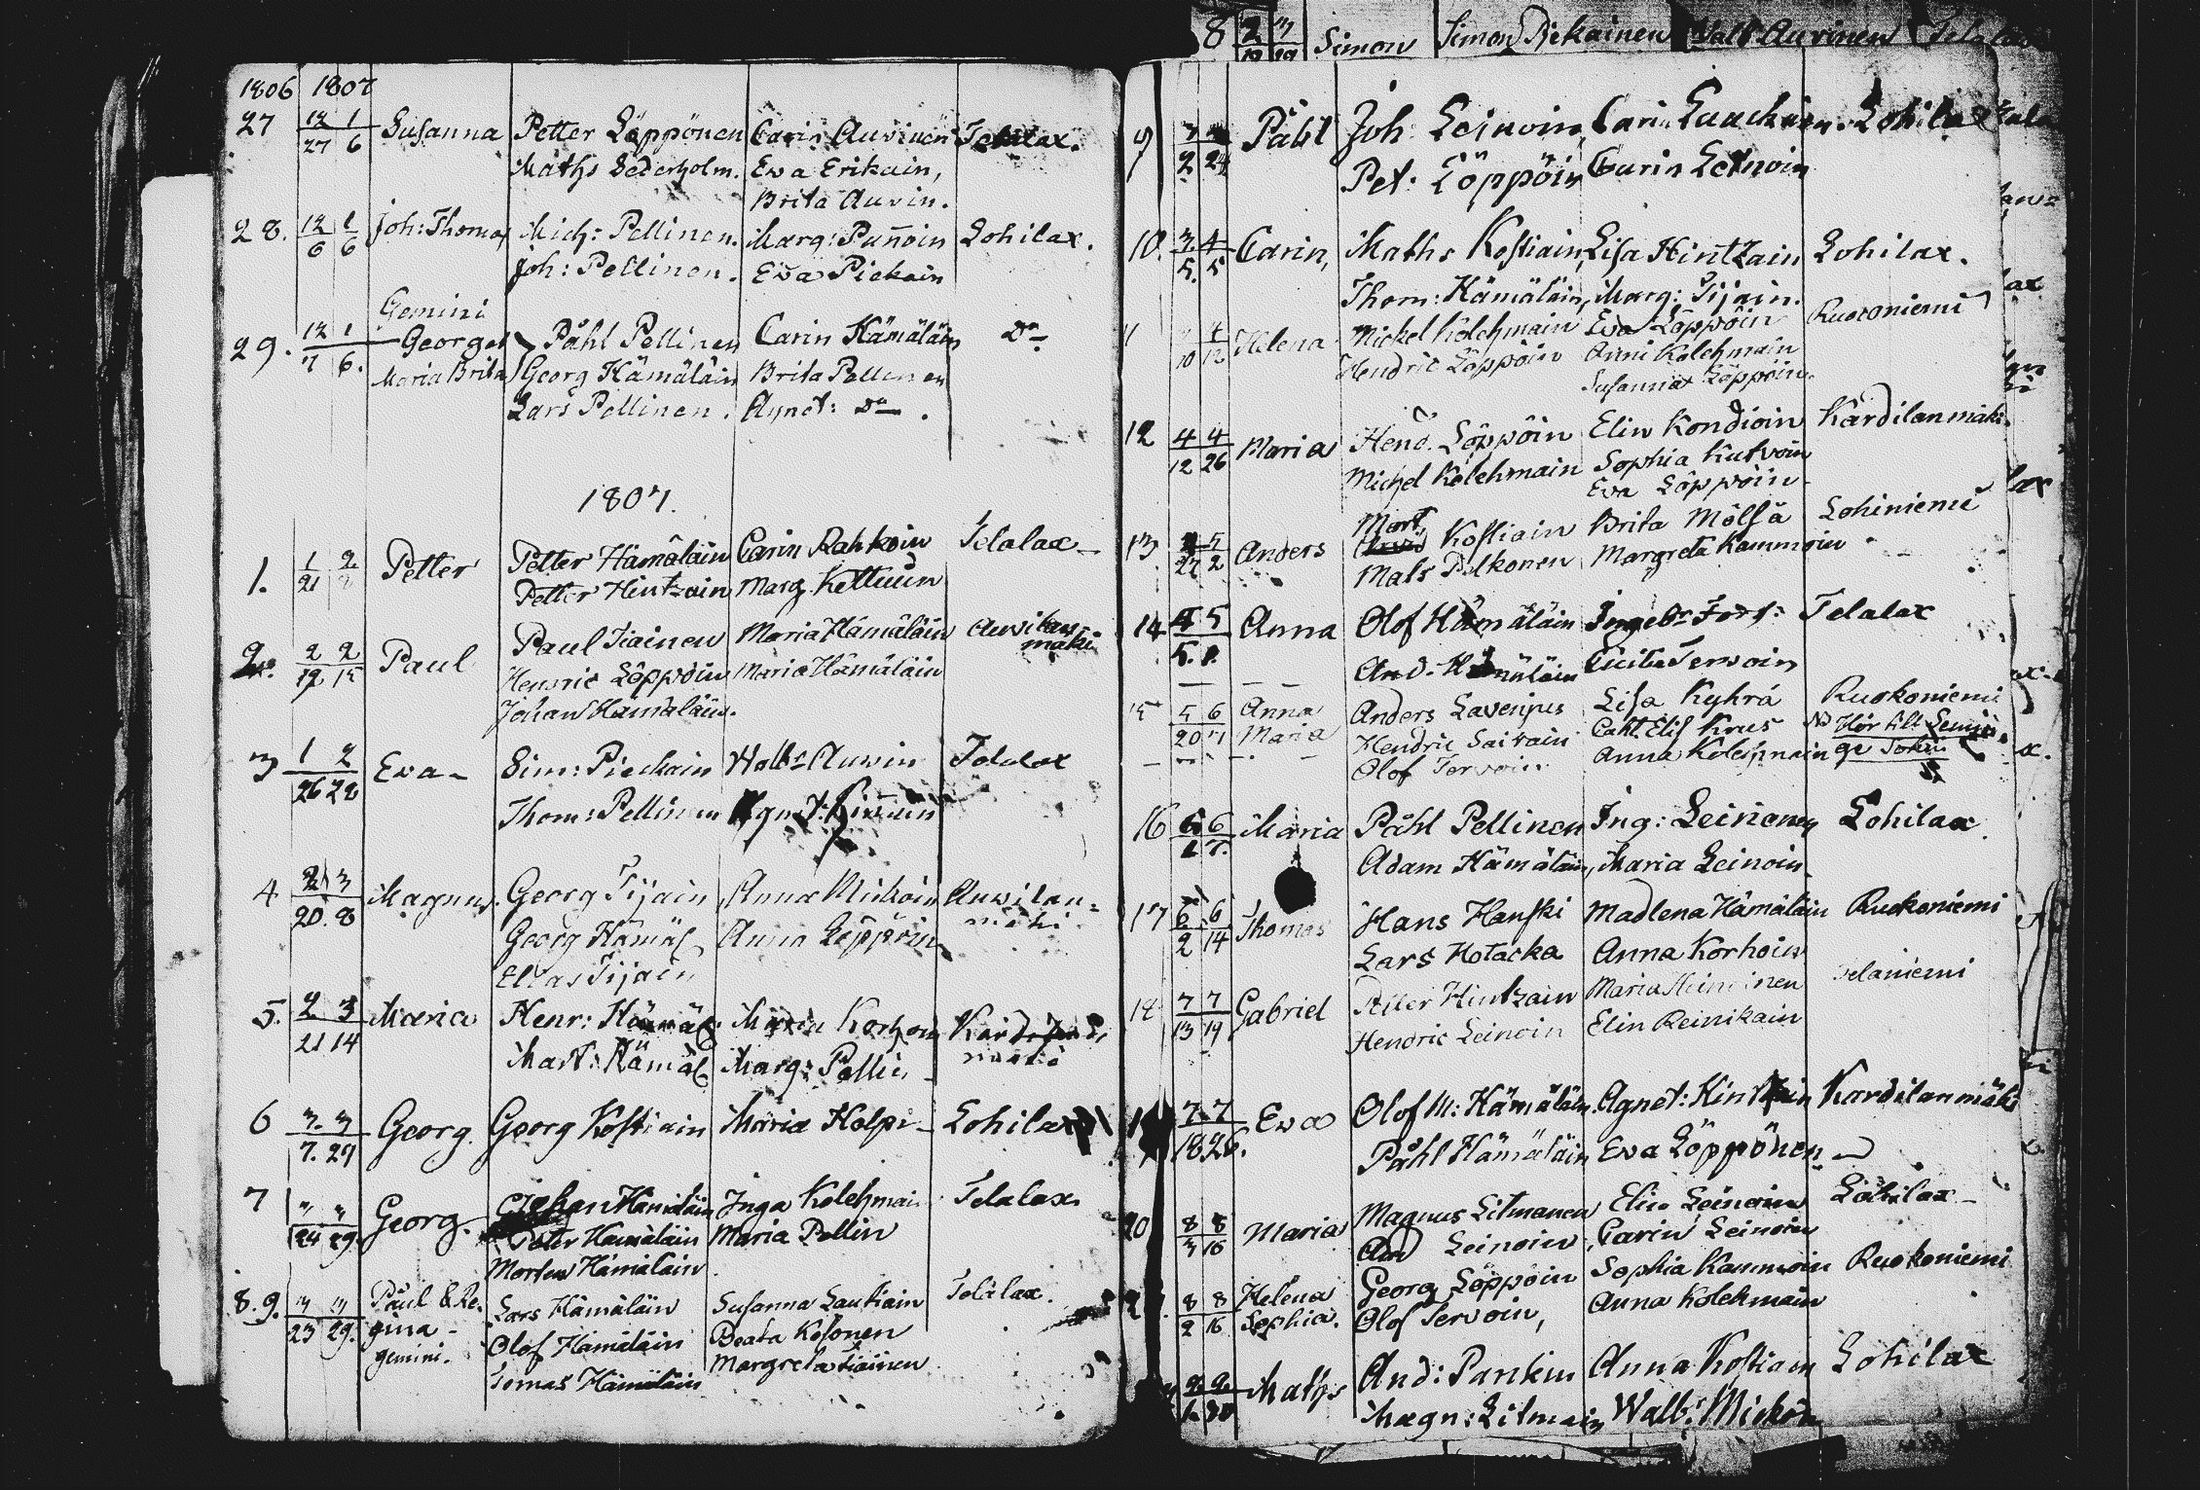 1806 1807
27 12/27 1/6 Susanna Petter Löppönen Carin Auvinen Telalax.
Maths Sederholm. Ewa Erikain,
Brita Auvin.
28. 12/6 1/6 Joh: Thomas Mich: Pellinen. Marg: Pañoin Lohilax.
Joh: Pellinen. Ewa Piekain
Gemini
29. 12/7 1/6. Georg et Påhl Pellinen Carin Hämäläin Do
Maria Brita Georg Hämäläin Brita Pellinen
Lars Pellinen. Agnet: Do.
1807.
1. 1/21 2 Petter Petter Hämäläin Carin Rahkoin Telalax
Petter Hintzain Marg. Kettuun
2. 2/12 2/15 Paul Paul Tiainen Maria Hämäläin Auvilan
mäki
Henric Löppöin Maria Hämäläin
Johan Hämäläin.
3 1/26 2/22 Ewa Sim: Piekain Walb: Auvin Telalax
Thom: Pellinen
4 2/20. 3/8 Magnus. Georg Tijain Anna Mickoin Auvilan=
mäki
Georg Hämäl Anna Löppöin
Elias Tijain
5. 2/21 3/14 Maria Henr: Hämäl: Maria Korhon
Mart: Hämäl Marg: Pellin
6 3/7. 3/29 Georg. Georg Kostiain Maria Holpi Lohilax
7 3/24 3/29. Georg Johan Hämäläin Inga Kolehmai Telalax
Peter Hämäläin Maria Pellin
Morten Hämäläin
8. 9. 3/23 3/29. Paul & Re- Lars Hämäläin Susanna Lautiain Telalax.
gina Olof Hämäläin Beata Kosonen
gemini. Tomas Hämäläin Margreta Tiainen
8 2/19 3/29 Simon Simon Piekainen Walb. Auvinen Telalax
9 3/2 24 Påhl Joh: Leinoin, Carin Lohilax
Pet: Löppöin Carin Leinoin
10. 3/5. 4/5 Carin, Maths Kostiain, Lisa Hintzain Lohilax.
Thom: Hämäläin, Marg: Tijain.
11 10 4/12 Helena Mickel Kolehmain Eva Löppöin Ruokoniemi
Hendric Löppöin Anni Kolehmain
Susanna Löppöin.
12 4/12 4/26 Maria Hend. Löppöin Elin Kondioin Kärdilanmäki.
Michel Kolehmain Sophia Kutvoin
Eva Löppöin
13 4/27 5/2 Anders Mort. Kostiain Brita Mölsä Lohiniemi
Mats Pelkonen Margreta Kammoin
14 4/5. 5/1. Anna Olof Hämäläin Ingeb: Fors: Telalax
And. Hämäläin Cicilia Tervoin
15 5/20 6/7 Anna Anders Lavenjus Lisa Kyhrä Ruokoniemi
Maria Hendric Saikain Cath. Elis Krus Nb Hör till Lemjo.
Olof Tervoin Anna Kolehmain ge Sokn
16 6/1 6/7. Maria Påhl Pellinen Ing: Leinonen Lohilax.
Adam Hämäläin, Maria Leinoin
17 6/2 6/14 Thomas Hans Hanski Madlena Hämäläin Ruokoniemi
Lars Hotacka Anna Korhoin
18 7/13 7/19 Gabriel Petter Hintzain Maria Heinoinen Telaniemi
Hendric Leinoin Elin Reinikain
19 7/18 7/26. Ewa Olof M: Hämäläin Agnet: Hintzain Kardilanmäki
Påhl Hämäläin Ewa Löppönen
20 8/3 8/16 Maria Magnus Litmanen Elin Leinoin Lohilax
And Leinoin Carin Leinoin
21. 8/2 8/16 Helena Georg Löppöin Sophia Kammoin Ruokoniemi
Sophia. Olof Tervoin, Anna Kolehmain
Maths And: Pankin Anna Kostiain Lohilax
Magn: Litmain Walb: Mickoin